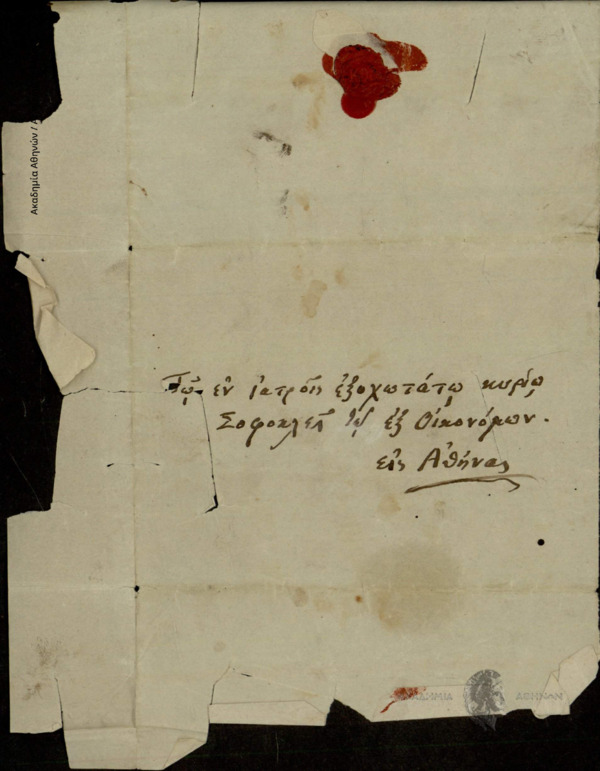 Ακαδημία Αθηνών / Α
Τῷ ἐν ἰατροῖς ἐξοχωτάτῳ κυρίῳ
Σοφοκλεῖ τῷ ἐξ Οἰκονόμων.
εἰς Ἀθήνας
ΑΚΑΔΗΜΙΑ ΑΘΗΝΩΝ